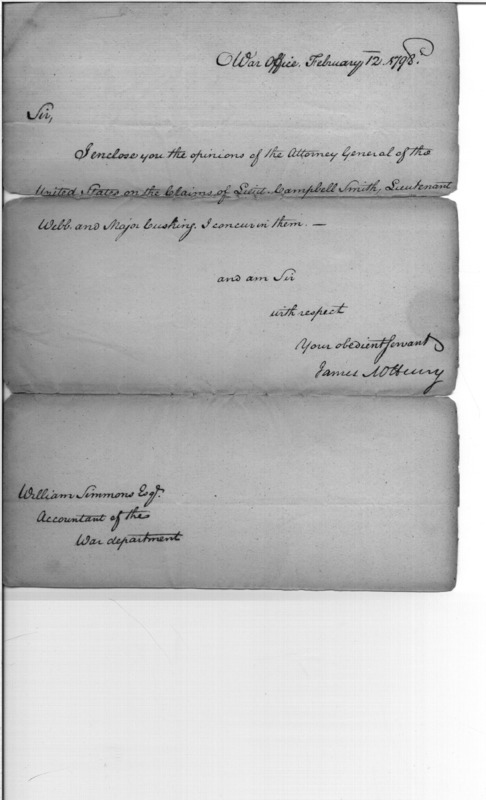 War Office. February 12. 1798.
Sir,
I enclose you the opinions of the Attorney General of the
United States on the Claims of Lieut. Campbell Smith, Lieutenant
Webb. and Major Cushing. I concur in them. —
and am Sir
with respect
Your obedient servant
James McHenry
William Simmons Esqr.
Accountant of the
War department